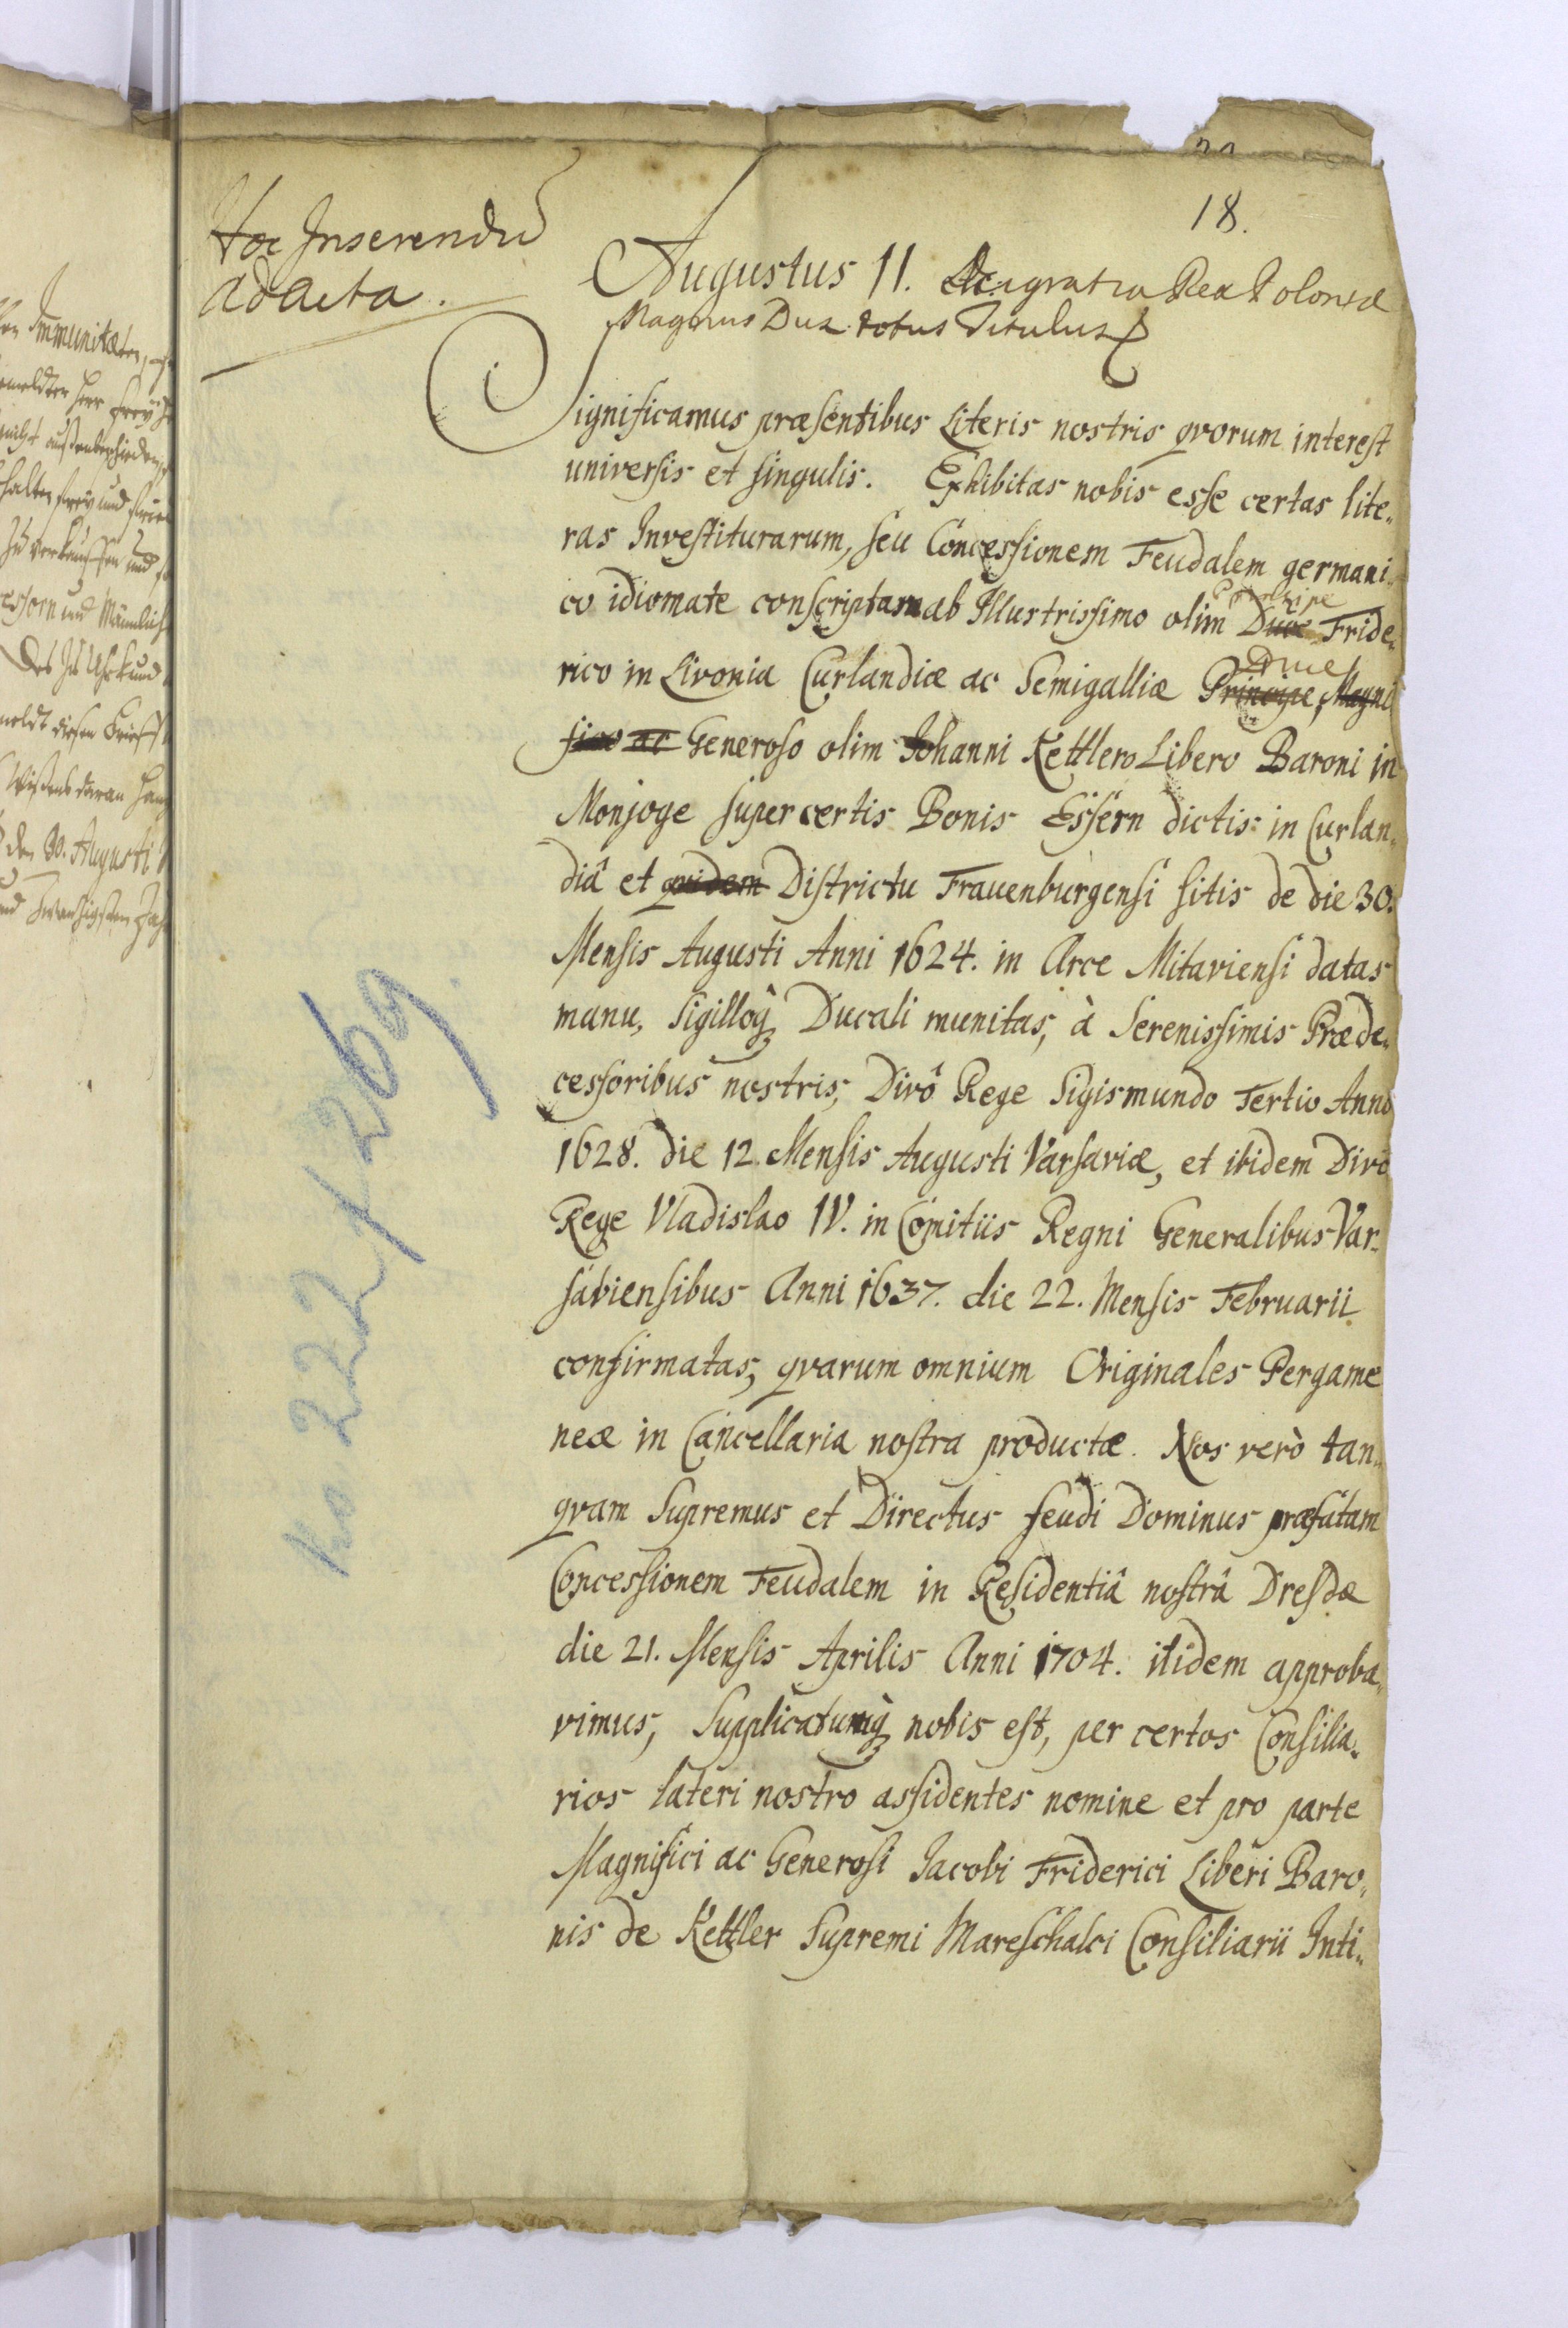 18.
Hoc Inserendū
ad acta.
Augustus II. Dei gratia Rex Poloniæ
Magnus Dux totus Titulus
Significamus præsentibus Literis nostris qvorum interest
universis et singulis. Exhibitas nobis esse certas lite„
ras Investiturarum, seu Concessionem Feudalem germani„
Principe
co idiomate conscriptam ab Illustrissimo olim Duce Fride„
Duce
rico in Livonia Curlandiæ ac Semigalliæ Principe, Magni
fico ac Generoso olim Johanni Kettlero Libero Baroni in
Monjoge super certis Bonis Essern dictis in Curlan„
diâ et quidem Districtu Frauenburgensi sitis de die 30.
Mensis Augusti Anni 1624. in Arce Mitaviensi datas
manu, sigilloq Ducali munitas, à Serenissimis Præde„
cessoribus nostris, Divô Rege Sigismundo Tertio Anno
1628. die 12. Mensis Augusti Varsaviæ, et itidem Divo
Rege Vladislao IV. in Comitiis Regni Generalibus Var„
saviensibus Anni 1637. die 22. Mensis Februarii
confirmatas, qvarum omnium Originales Pergame
neæ in Cancellaria nostra productæ. Nos verò tan„
qvam Supremus et Directus feudi Dominus præfatam
Concessionem Feudalem in Residentiâ nostrâ Dresdæ
die 21. Mensis Aprilis Anni 1704. itidem approba„
vimus, Supplicatumq nobis est, per certos Consilia„
rios lateri nostro assidentes nomine et pro parte
Magnifici ac Generosi Jacobi Friderici Liberi Baro„
nis de Kettler Supremi Mareschalci Consiliarii Inti„
No 222/269.
Immunitæten,
und
den 30. Augusti